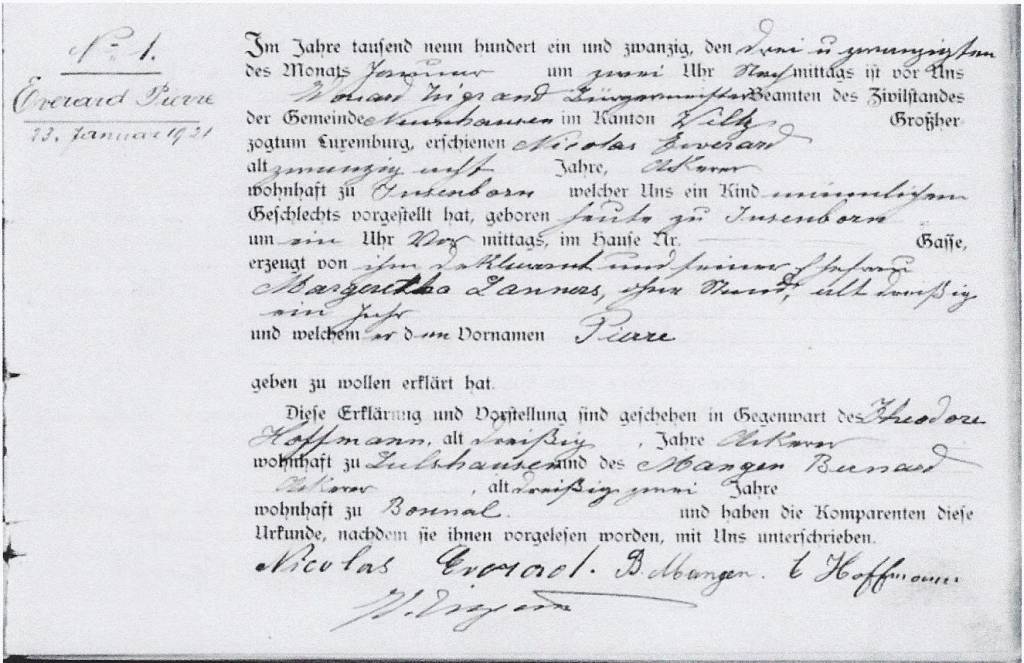 N° 1.
Everard Pierre
23. Januar 1921
Im Jahre tausend neun hundert ein und zwanzig, den drei u zwanzigten
des Monats Januar um zwei Uhr Nachmittags ist vor Uns
Bürgermeister Beamten des Zivilstandes
der Gemeinde Neunhausen im Kanton Wiltz Großher-
zogtum Luxemburg, erschienen Nicolas Everard
alt zwanzig acht Jahre, Ackerer
wohnhaft zu Insenborn welcher Uns ein Kind männlichen
Geschlechts vorgestellt hat, geboren heute zu Insenborn
um ein Uhr Vor mittags, im Hause Nr. Gasse,
erzeugt von ihm Deklarant und seiner Ehefrau
Margeretha Zanners, ohne Stand, alt dreißig
ein Jahr
und welchem er den Vornamen Pierre
geben zu wollen erklärt hat.
Diese Erklärung und Vorstellung sind geschehen in Gegenwart des Theodore
Hoffmann, alt dreißig , Jahre Ackerer
wohnhaft zu Lultzhausen und des Mangen Bernard
Ackerer , alt dreißig zwei Jahre
wohnhaft zu Bonnal. und haben die Komparenten diese
Urkunde, nachdem sie ihnen vorgelesen worden, mit Uns unterschrieben.
Nicolas Everard. B. Mangen. t Hoffmann